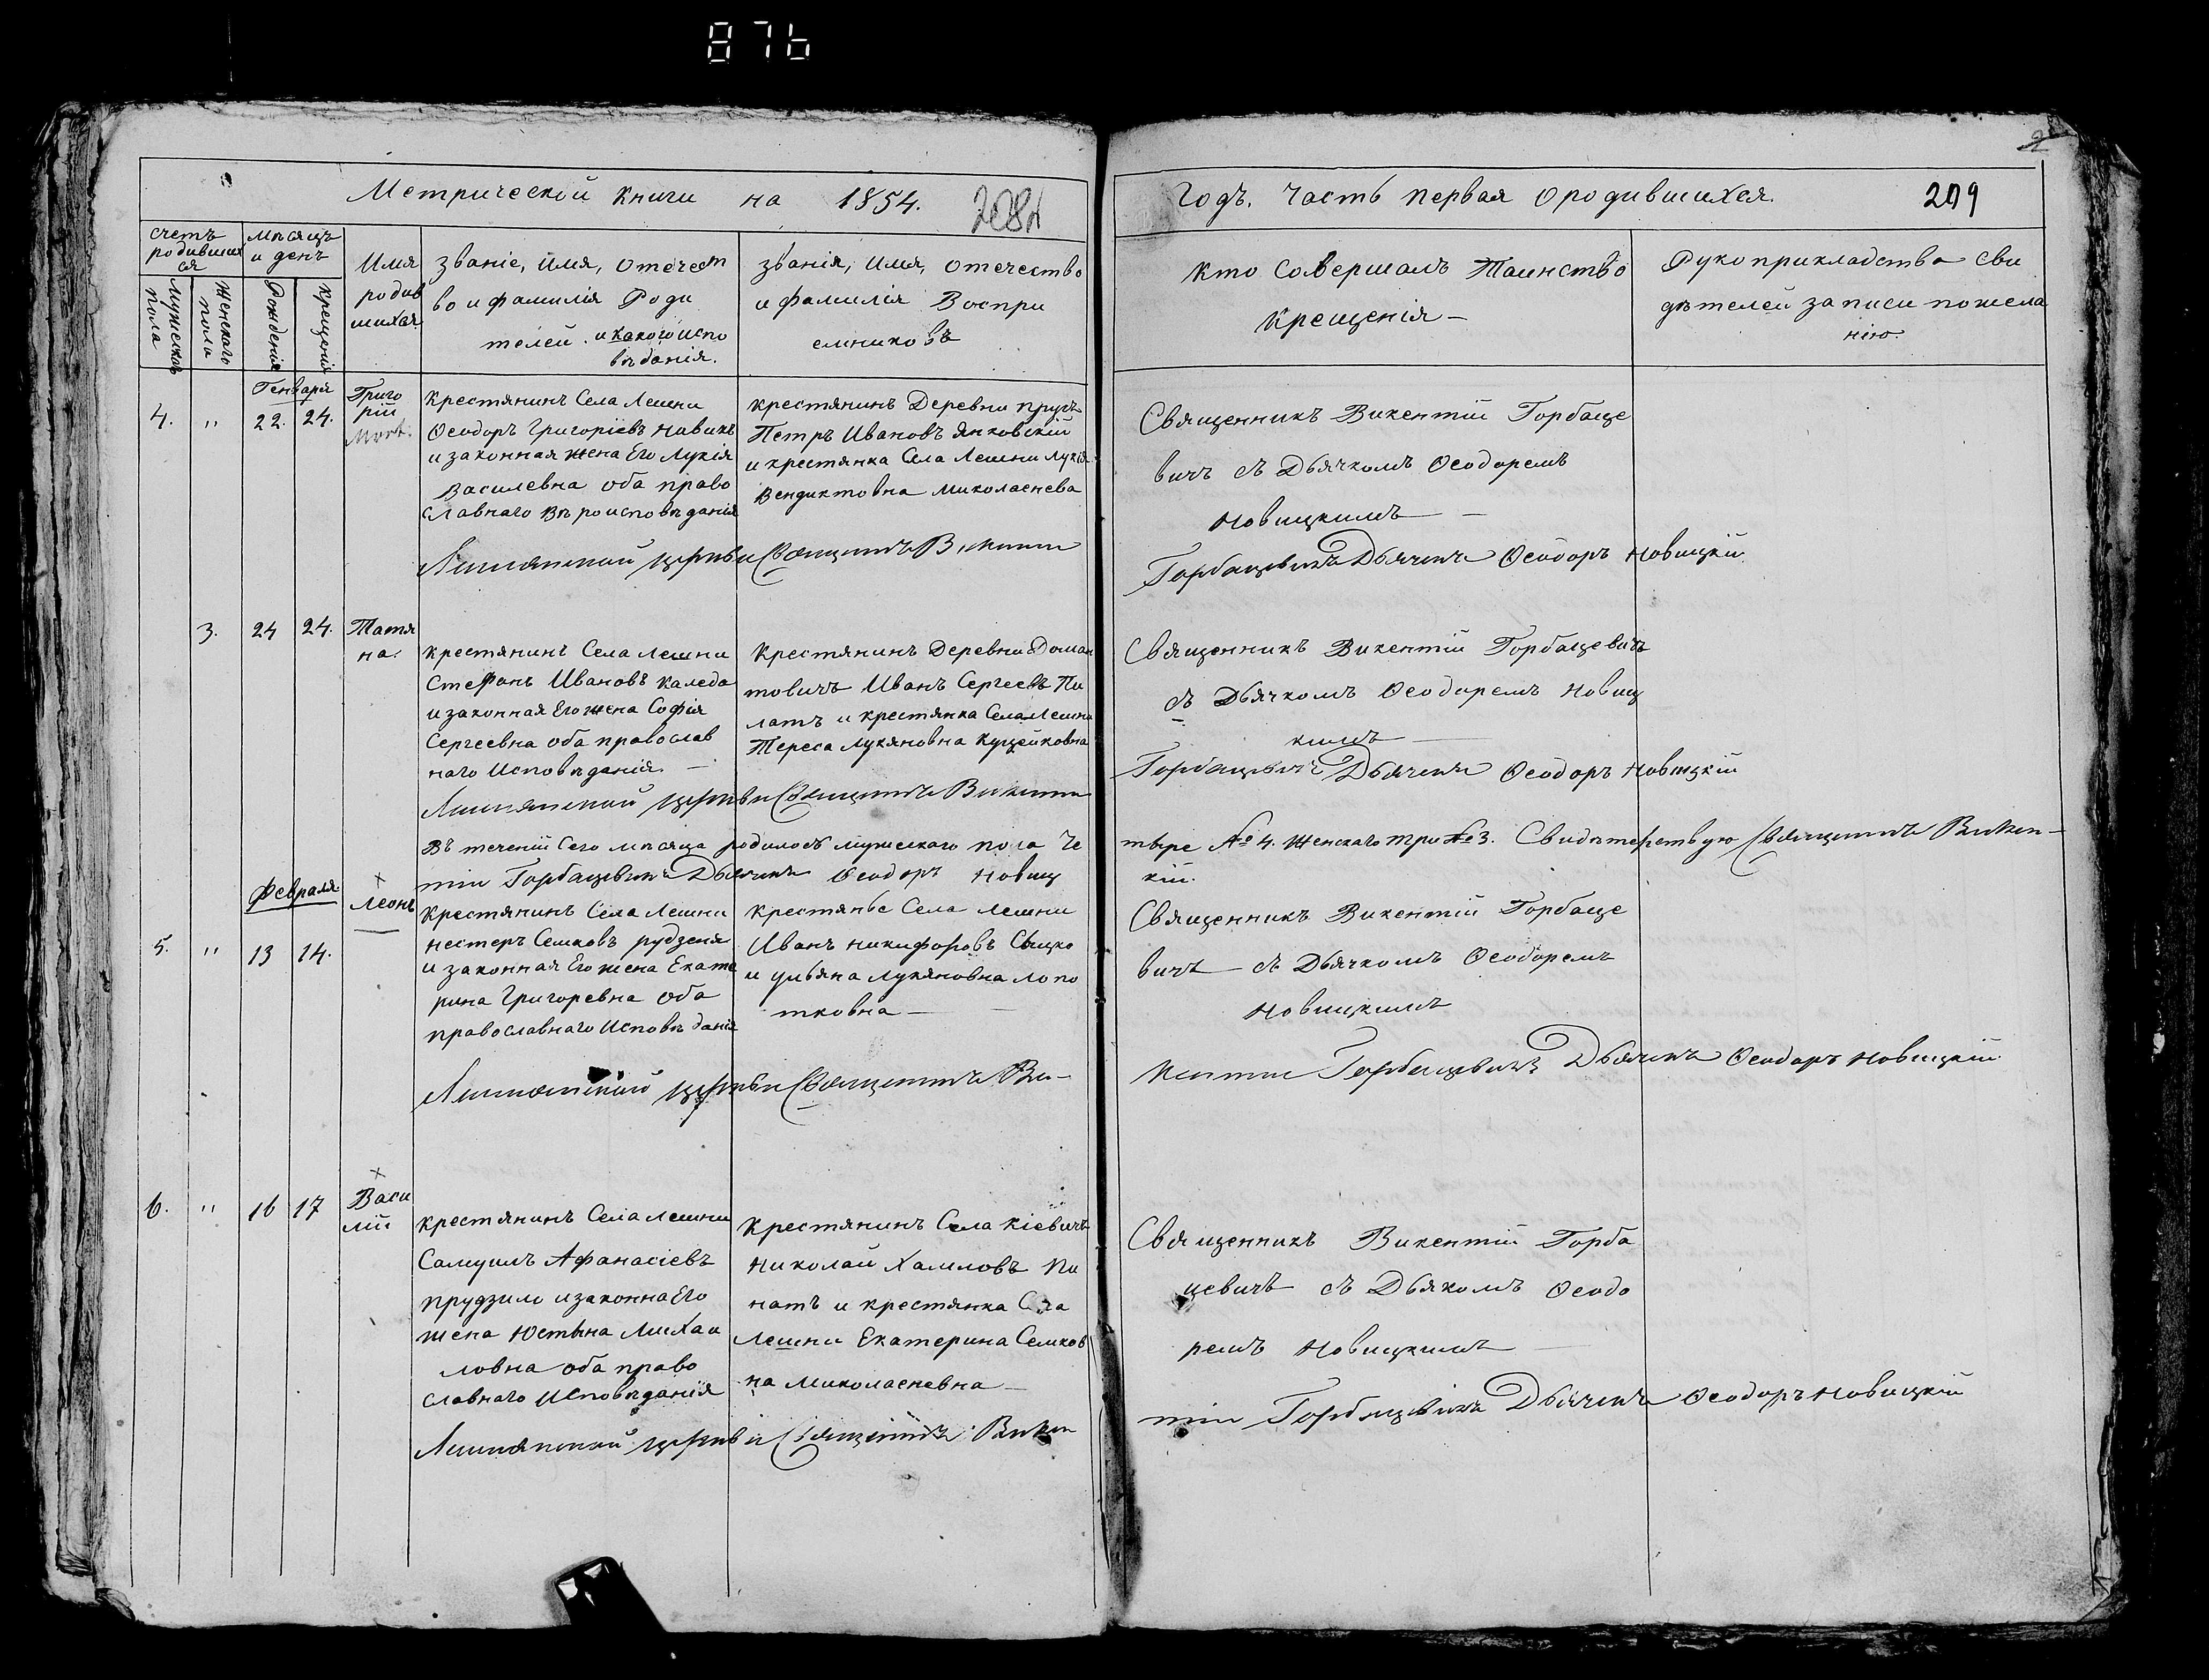 876
Метрической книги на 1854.
208
годъ. Часть первая о родившихся.
209
счетъ родившихся
Мужеска пола
Женскаго пола
мѣсяцъ и день
Рожденія
Крещенія
Имя
родив
шихся
Званіе, имя, отечест
во и фамилія Роди
телей. и какого испо
вѣданія.
Званія, имя, отечество
и фамилія Воспри
емниковъ
Кто совершалъ Таинство
Крещенія —
Рукоприкладство сви
дѣтелей записи по жела
нію.
Генваря
4. " 22. 24.
Григо
рій
Mort.
Крестянинъ Села Лешни
Ѳеодоръ Григоріевъ Навикъ
и законная жена Его Лукія
Василевна оба право
славнаго вѣроисповѣданія
крестянинъ Деревни
Петръ Ивановъ Янковскій
и крестянка Села Лешни Лукія
Вендиктовна Миколаенева
Священникъ Викентій Горбаце
вичъ съ Дьячкомъ Ѳеодоремъ
Новицкимъ —
Лешнянской церкви Священникъ Викенти
Горбацевичъ Дьячекъ Ѳеодоръ Новицкій
3. 24 24.
Татя
на.
крестянинъ Села Лешни
Стефанъ Ивановъ Каледа
и законная Его жена Софія
Сергеевна оба православ
наго Исповѣданія. —
Крестянинъ Деревни Доман
товичъ Иванъ Сергеевъ Пи
латъ и крестянка Села Лешни
Тереса Лукяновна Куцейковна
Священникъ Викентій Горбацевичъ
съ Дьячкомъ Ѳеодоремъ Новиц
кимъ
Лешнянской церкви Священникъ Викенти
Горбацевичъ Дьячекъ Ѳеодоръ Новицкій
Въ теченій сего мѣсяца родилось мужескаго пола че
тыре № 4. Женскаго три № 3. Свидѣтельствую Священникъ Викен-
тіи Горбацевичъ Дьячекъ Ѳеодоръ Новиц
кій.
Февраля
5. " 13 14.
×
Леонъ
Крестянинъ Села Лешни
Нестеръ Семковъ Рудзеня
и законная Его жена Екате
рина Григоревна оба
православнаго Исповѣданія
Крестянье Села Лешни
Иванъ Никифоровъ Сыцко
и Ульяна Лукяновна Лопо
тковна —
Священникъ Викентій Горбаце
вичъ — съ Дьячкомъ Ѳеодоремъ
Новицкимъ
Лешнянской церкви Священникъ Ви-
кентіи Горбацевичъ Дьячекъ Ѳеодоръ Новицкій
6. " 16 17
×
Васи
лій
крестянинъ Села Лешни
Самуилъ Афанасіевъ
Прудзило и законна Его
жена Юстына Михаи
ловна оба право
славнаго Исповѣданія
Крестянинъ Села Кіевичъ
Николай Хамловъ Пи
натъ и крестянка Села
Лешни Екатерина Семков
на Миколаеневна —
Священникъ Викентій Горба
цевичъ съ Дьякомъ Ѳеодо
ремъ Новицкимъ
Лешнянской церкви Священникъ Викен
тіи Горбацевичъ Дьячекъ Ѳеодоръ Новицкій